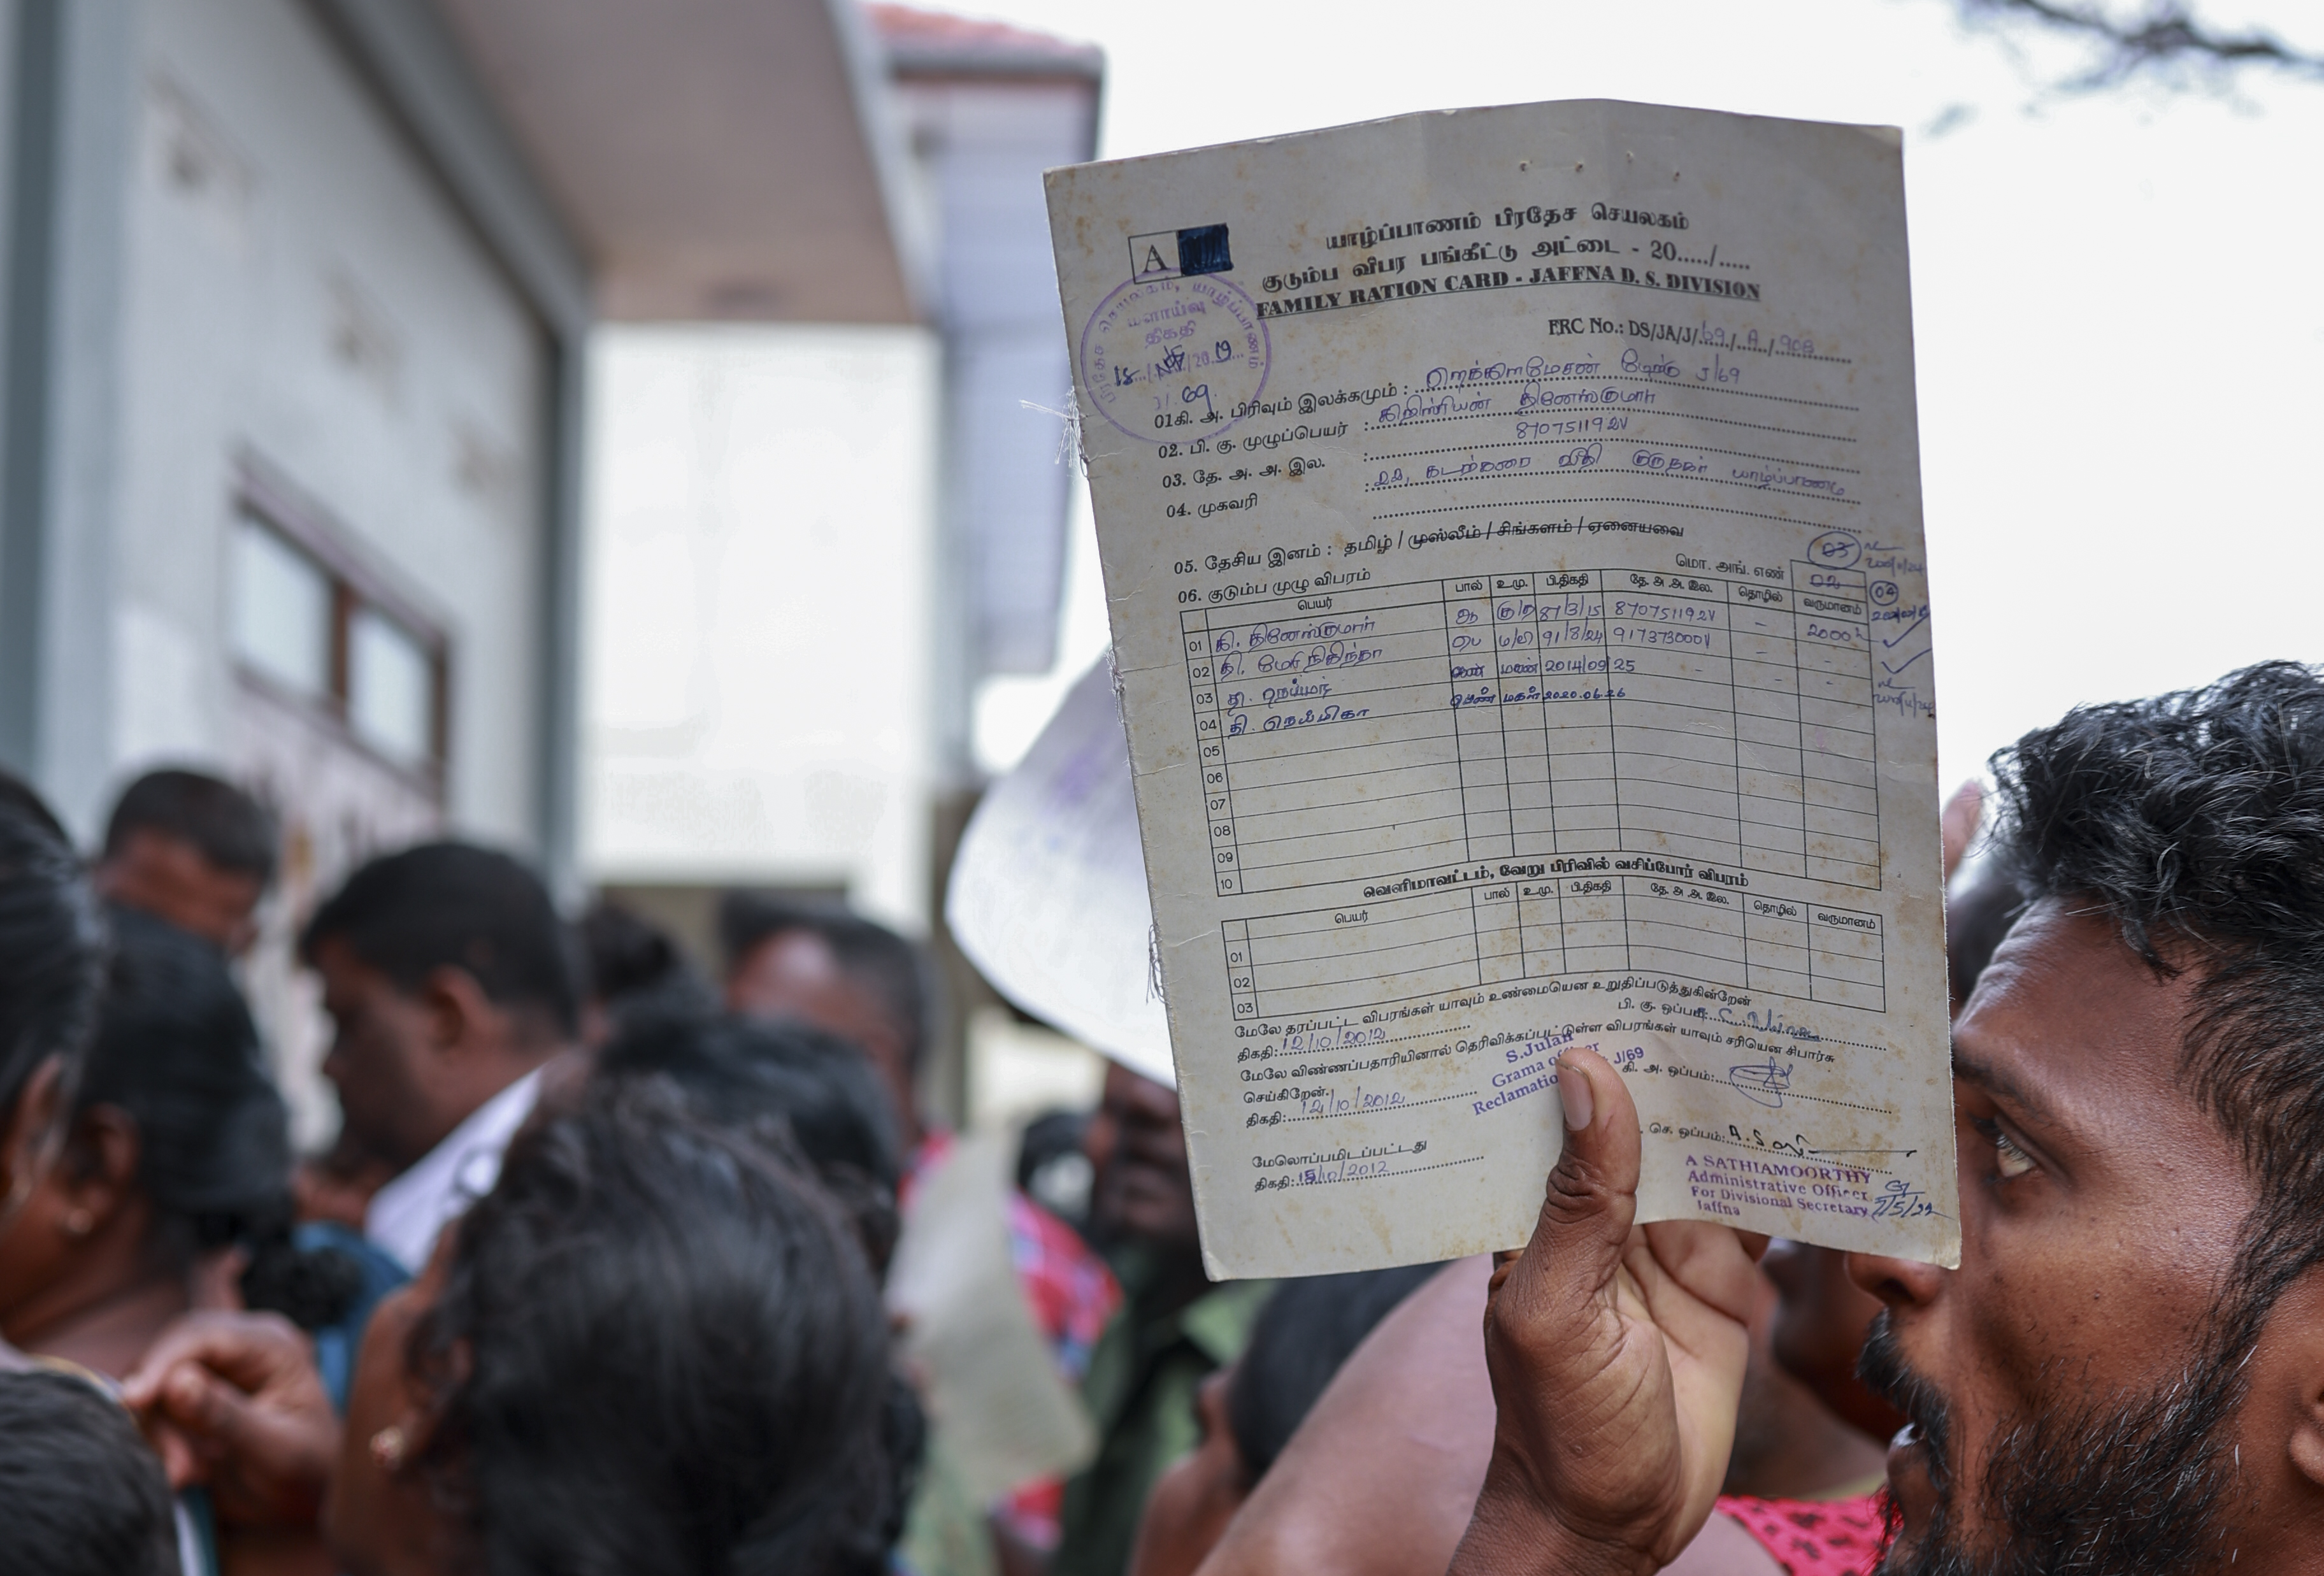 A
யாழ்ப்பாணம் பிரதேச செயலகம்
குடும்ப விபர பங்கீட்டு அட்டை - 20...../.....
FAMILY RATION CARD - JAFFNA D. S. DIVISION
FRC No.: DS/JA/J/69/A/908
பிரதேச செயலகம், யாழ்ப்பாணம்
மீளாய்வு
திகதி
J/69
01கி. அ. பிரிவும் இலக்கமும் : J/69
02. பி. கு. முழுப்பெயர் : கிறிஸ்ரியன் தினேஸ்குமார்
03. தே. அ. அ. இல. : 870751192V
04. முகவரி : 22, கடற்கரை வீதி குருநகர் யாழ்ப்பாணம்
05. தேசிய இனம் : தமிழ் / முஸ்லீம் / சிங்களம் / ஏனையவை
06. குடும்ப முழு விபரம்
மொ. அங். எண் 02 03 04
பெயர் பால் உ.மு. பி.திகதி தே. அ. அ. இல. தொழில் வருமானம்
01 கி. தினேஸ்குமார் ஆ கு/த 87/3/15 870751192V - 2000
02 தி. மேரி நிதிந்தா பெ ம/வி 91/8/24 917373000V - -
03 தி. மகன் 2014/09/25 - - -
04 தி. பெண் மகள் 2020.06.26
05
06
07
08
09
10
வெளிமாவட்டம், வேறு பிரிவில் வசிப்போர் விபரம்
பெயர் பால் உ.மு. பி.திகதி தே. அ. அ. இல. தொழில் வருமானம்
01
02
03
மேலே தரப்பட்ட விபரங்கள் யாவும் உண்மையென உறுதிப்படுத்துகின்றேன்
திகதி: 12/10/2012 பி. கு. ஒப்பம்:
மேலே விண்ணப்பதாரியினால் தெரிவிக்கப்பட்டுள்ள விபரங்கள் யாவும் சரியென சிபார்சு
செய்கிறேன்.
திகதி: 12/10/2012 கி. அ. ஒப்பம்:
S.Julan
Grama J/69
மேலொப்பமிடப்பட்டது
திகதி: 15/10/2012 செ. ஒப்பம்:
A SATHIAMOORTHY
Administrative Officer
For Divisional Secretary
Jaffna